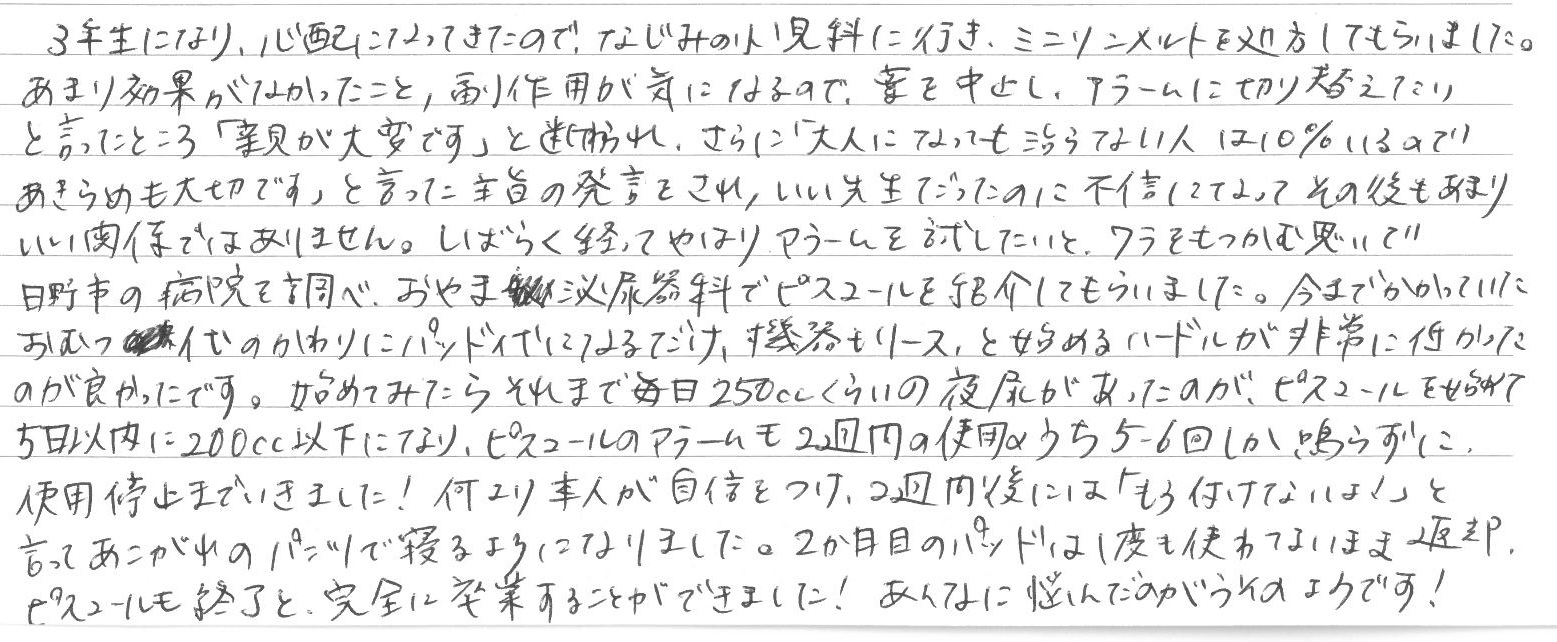 3年生になり、心配になってきたので、なじみの小児科に行き、ミニリンメルトを処方してもらいました。
あまり効果がなかったこと，副作用が気になるので、薬を中止し、アラームに切り替えたい
と言ったところ「親が大変です」と断られ、さらに「大人になっても治らない人は10%いるので
あきらめも大切です」と言った主旨の発言をされ，いい先生だったのに不信になってその後もあまり
いい関係ではありません。しばらく経ってやはりアラームを試したいと、ワラをもつかむ思いで
日野市の病院を調べ、おやま泌尿器科でピスコールを紹介してもらいました。今までかかっていた
おむつ代のかわりにパッド代になるだけ、機器もリース、と始めるハードルが非常に低かった
のが良かったです。始めてみたらそれまで毎日250ccくらいの夜尿があったのが、ピスコールを始めて
5日以内に200cc以下になり、ピスコールのアラームも2週間の使用のうち5-6回しか鳴らずに、
使用停止までいきました！何より本人が自信をつけ、2週間後には「もう付けないよ！」と
言ってあこがれのパンツで寝るようになりました。2か月目のパッドは1度も使わないまま返却、
ピスコールも終了と、完全に卒業することができました！あんなに悩んだのがうそのようです！